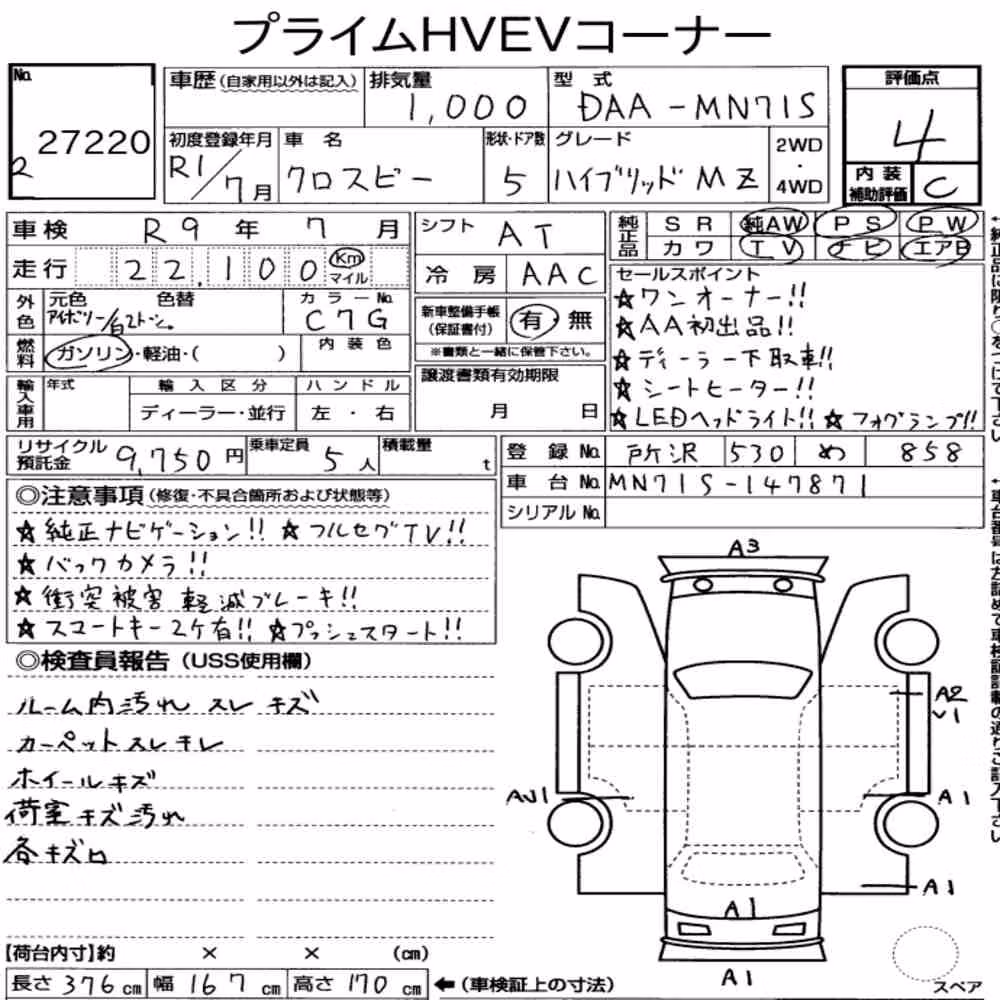 プライムHVEVコーナー
No. 27220
R
車歴(自家用以外は記入) 排気量 1,000 型式 DAA-MN71S
評価点 4
初度登録年月 R1/7月 車名 クロスビー 形状・ドア数 5 グレード ハイブリッド MZ 2WD・4WD
内装補助評価 C
車検 R9年 7月
シフト AT
純正品 SR 純AW PS PW
カワ TV ナビ エアB
走行 22,100 Km マイル
冷房 AAC
外色 元色 アイボリー/白2トーン 色替 カラーNo. C7G
新車整備手帳(保証書付) 有 無
※書類と一緒に保管下さい。
燃料 ガソリン・軽油・( ) 内装色
譲渡書類有効期限 月 日
輸入車用 年式 輸入区分 ハンドル
ディーラー・並行 左・右
セールスポイント
☆ワンオーナー!!
☆AA初出品!!
☆ディーラー下取車!!
☆シートヒーター!!
☆LEDヘッドライト!! ☆フォグランプ!!
リサイクル預託金 9,750円 乗車定員 5人 積載量 t
登録No. 所沢 530 め 858
車台No. MN71S-147871
シリアルNo.
◎注意事項(修復・不具合箇所および状態等)
☆純正ナビゲーション!! ☆フルセグTV!!
☆バックカメラ!!
☆衝突被害軽減ブレーキ!!
☆スマートキー2ケ有!! ☆プッシュスタート!!
◎検査員報告(USS使用欄)
ルーム内汚れ スレ キズ
カーペットスレ キレ
ホイールキズ
荷室キズ汚れ
各キズ凹
A3
A2
V1
AU1
A1
A1
A1
A1
スペア
【荷台内寸】約 × × (cm)
長さ 376cm 幅 167cm 高さ 170cm ←(車検証上の寸法)